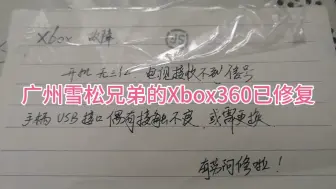 Xbox 故障
JS
开机无三红 电视接收不到信号
广州雪松兄弟的Xbox360已修复
手柄USB接口偶有接触不良,或需更换
有劳阿修啦!